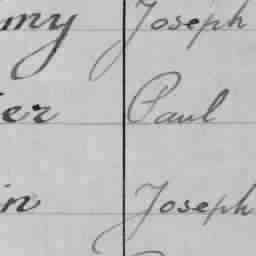 my Joseph
er Paul
in Joseph